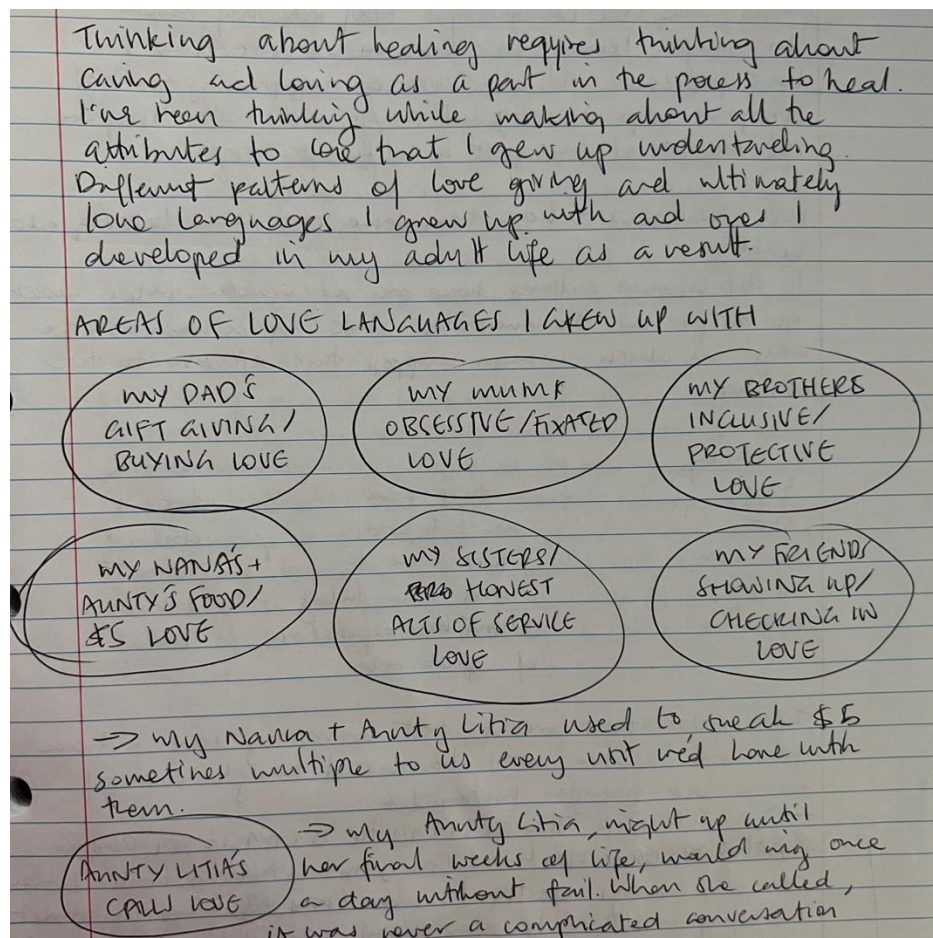 Thinking about healing requires thinking about
caring and loving as a part in the process to heal.
I've been thinking while making about all the
attributes to love that I grew up understanding.
Different patterns of love giving and ultimately
love languages I grew up with and ones I
developed in my adult life as a result.
AREAS OF LOVE LANGUAGES I GREW UP WITH
MY DAD'S
GIFT GIVING/
BUYING LOVE
MY MUMS
OBSESSIVE/FIXATED
LOVE
MY BROTHERS
INCLUSIVE/
PROTECTIVE
LOVE
MY NANA'S +
AUNTY'S FOOD/
$5 LOVE
MY SISTERS/
HONEST
ACTS OF SERVICE
LOVE
MY FRIENDS
SHOWING UP/
CHECKING IN
LOVE
→ My Nana + Aunty Litia used to sneak $5
sometimes multiple to us every visit we'd have with
them.
AUNTY LITIA'S
CALLS LOVE
→ My Aunty Litia, right up until
her final weeks of life, would ring once
a day without fail. When she called,
it was never a complicated conversation